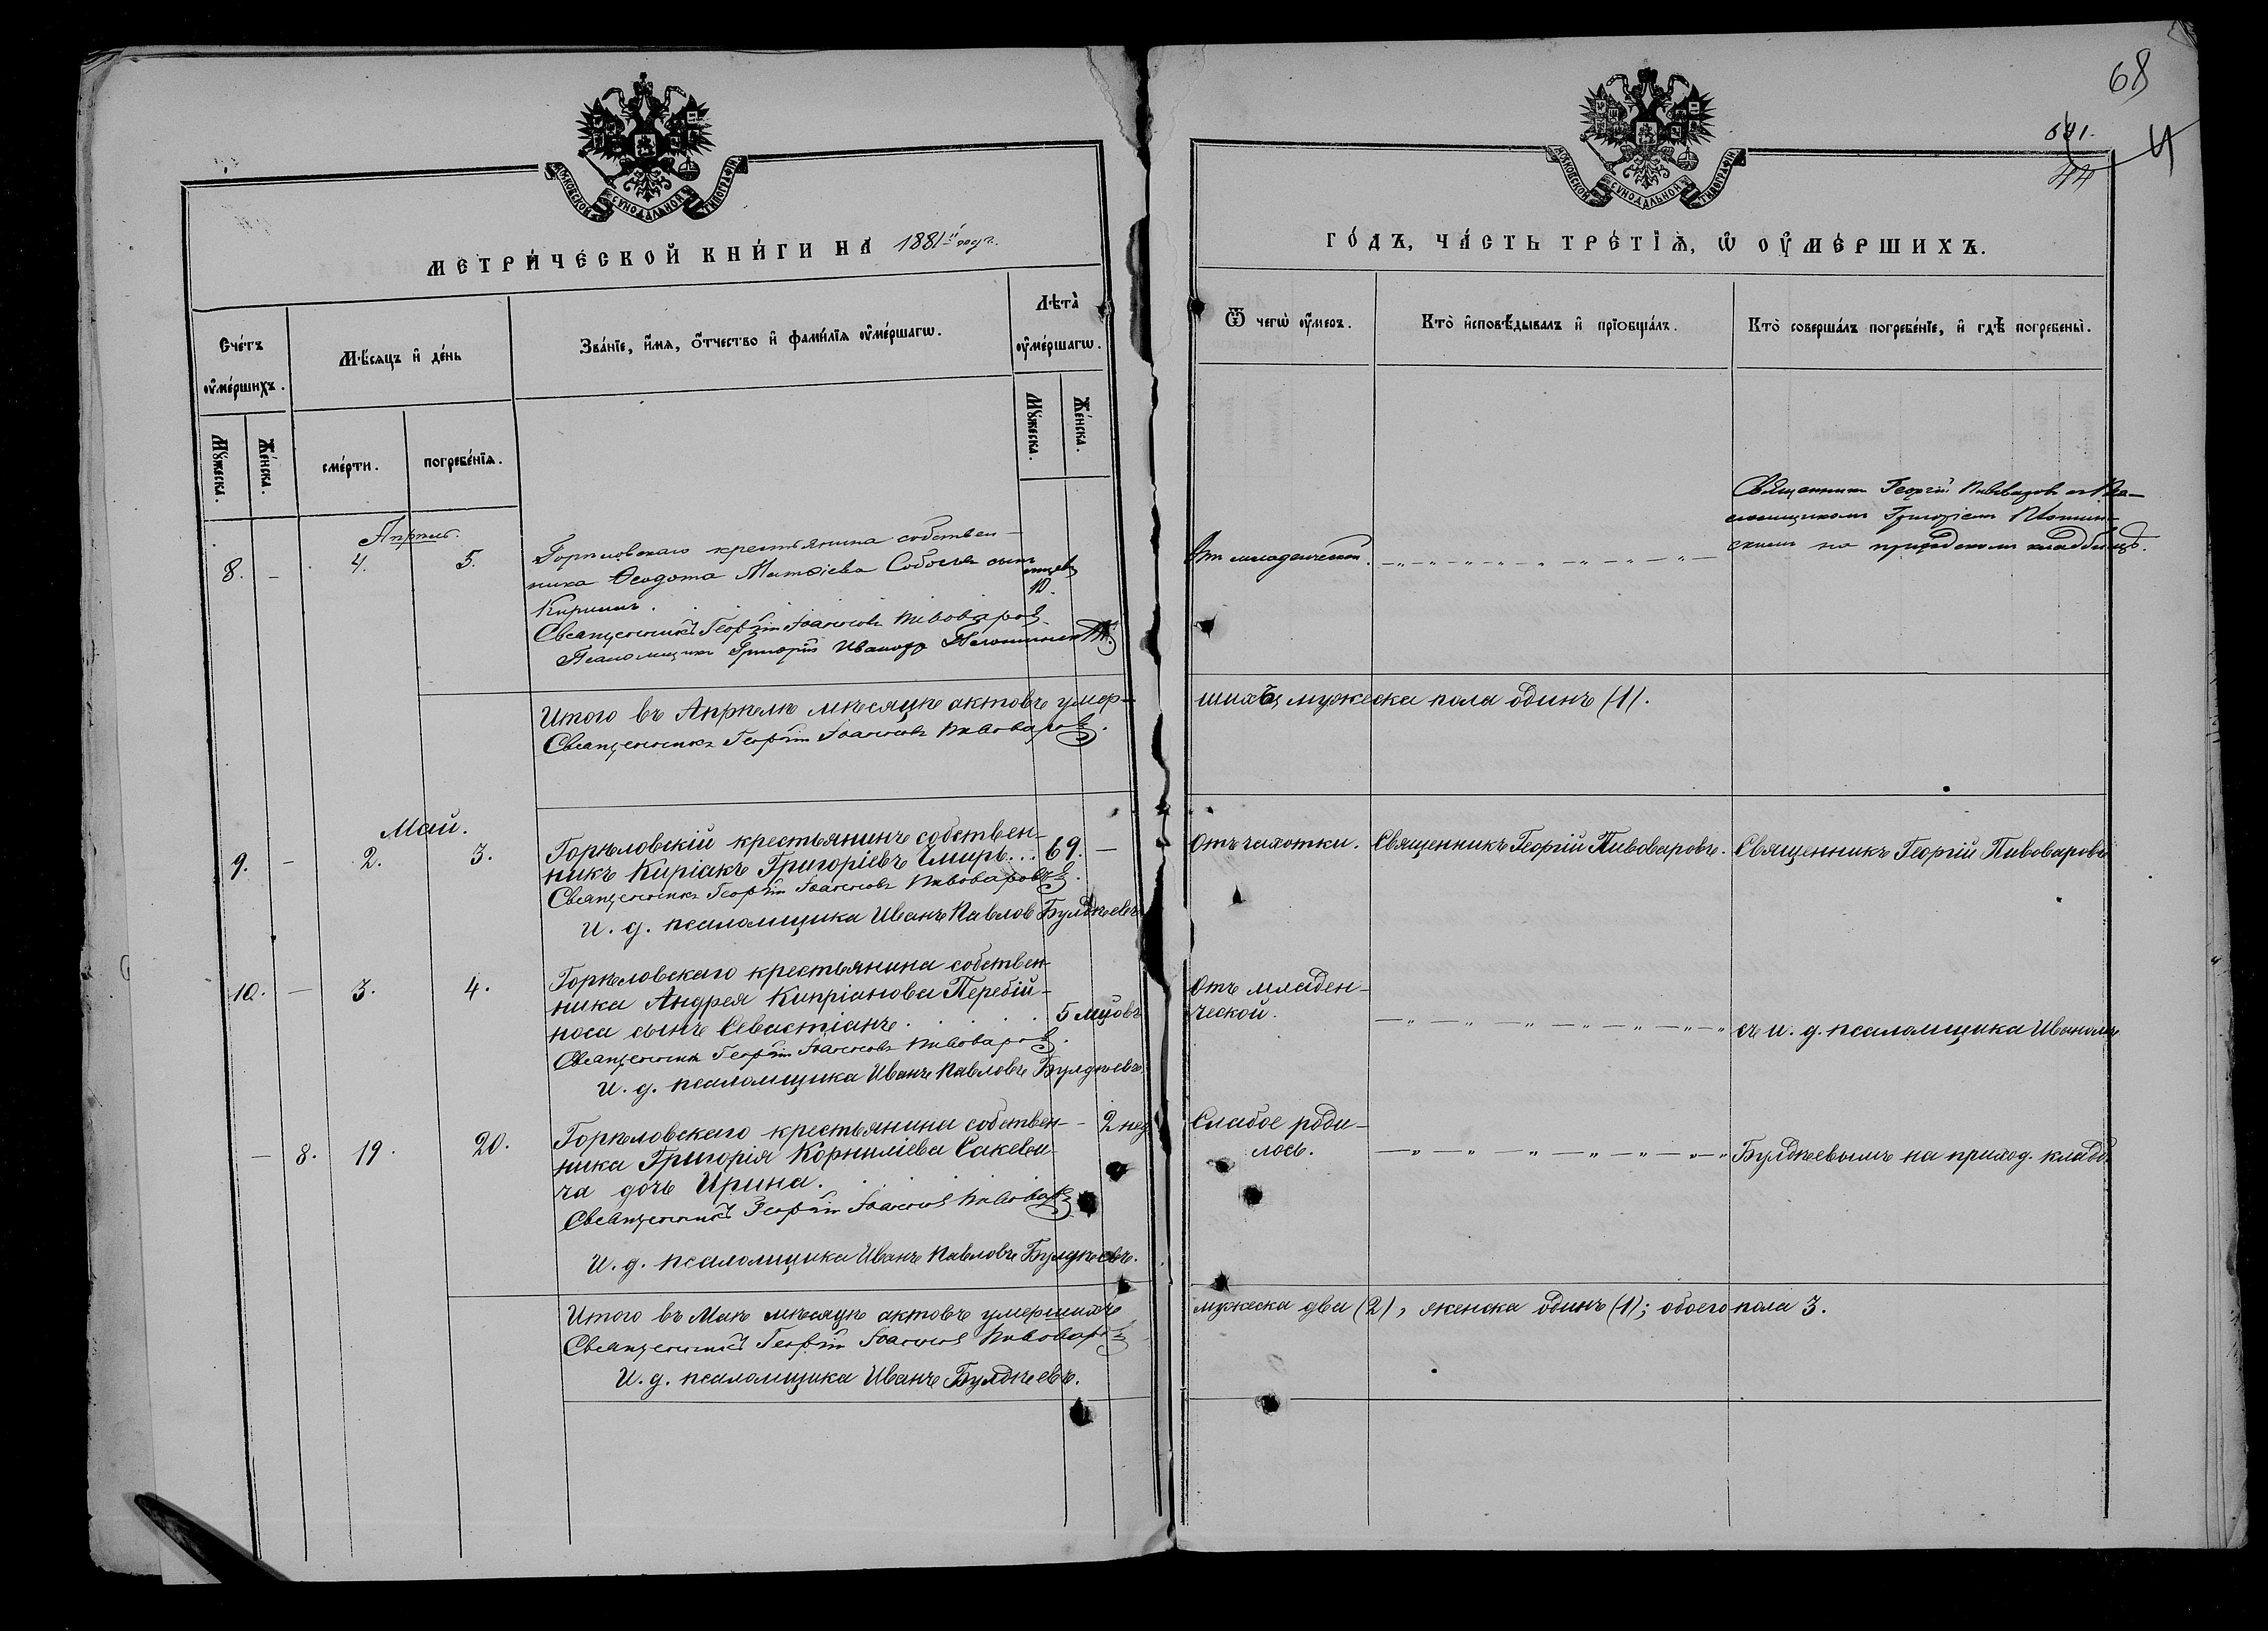 68
641.
44
МОСКОВСКОЙ СѴНОДАЛЬНОЙ ТИПОГРАФІИ
МОСКОВСКОЙ СѴНОДАЛЬНОЙ ТИПОГРАФІИ
МЕТРИ́ЧЕСКОЙ КНИ́ГИ НА 1881й годъ.
ГО́ДЪ, ЧА́СТЬ ТРЕ́ТІѦ, Ѡ ОУМЕ́РШИХЪ.
Сче́тъ оумершихъ.
Мѣсяцъ и день
Зва́нїе, и́мя, о́тчество и фами́лїя оуме́ршагѡ.
Лѣта̀ оуме́ршагѡ.
Ѿ чегѡ̀ оу́меръ.
Кто̀ исповѣ́дывалъ и прїобща́лъ.
Кто̀ соверша́лъ погребе́нїе, и гдѣ̀ погребены̀.
Мꙋжеска.
Же́нска.
сме́рти.
погребе́нїя.
Мꙋжеска.
Же́нска.
Апрель.
8. - 4. 5.
Горѣловскаго крестьянина собствен-
ника Ѳеодота Матѳіева Собо сынъ
Кириллъ.
10.
Священникъ Георгій Іоанновъ Пивоваровъ
Псаломщикъ Григорій Ивановъ
Отъ младенческой.
Священникъ Георгій Пивоваровъ съ Пса-
ломщикомъ Григоріемъ
скимъ на приходскомъ кладбищѣ.
Итого въ Апрѣлѣ мѣсяцѣ актовъ умер-
шихъ мужеска пола одинъ (1).
Священникъ Георгій Іоанновъ Пивоваровъ.
Май.
9. - 2. 3.
Горѣловскій крестьянинъ собствен-
никъ Киріакъ Григоріевъ Чмирь... 69. -
Священникъ Георгій Іоанновъ Пивоваровъ.
И. д. псаломщика Иванъ Павлов Булдѣевъ
Отъ чахотки. Священникъ Георгій Пивоваровъ. Священникъ Георгій Пивоваровъ
10. - 3. 4.
Горѣловскаго крестьянина собствен-
ника Андрея Кипріанова Перебій-
носа сынъ Севастіанъ. 5 мцовъ
Священникъ Георгій Іоанновъ Пивоваровъ.
И. д. псаломщика Иванъ Павловъ Булдѣевъ.
Отъ младен-
ческой.
съ и. д. псаломщика Иваномъ
- 8. 19. 20.
Горѣловскаго крестьянина собствен- - 2 нед
ника Григорія Корниліева Сакевы-
ча дочь Ирина.
Священникъ Георгій Іоанновъ Пивоваровъ
И. д. псаломщика Иванъ Павловъ Булдѣевъ.
Слабое роди-
лось.
Булдѣевымъ на приход. кладб.
Итого въ Маѣ мѣсяцѣ актовъ умершихъ
мужеска два (2), женска одинъ (1); обоего пола 3.
Священникъ Георгій Іоанновъ Пивоваровъ
И. д. псаломщика Иванъ Булдѣевъ.